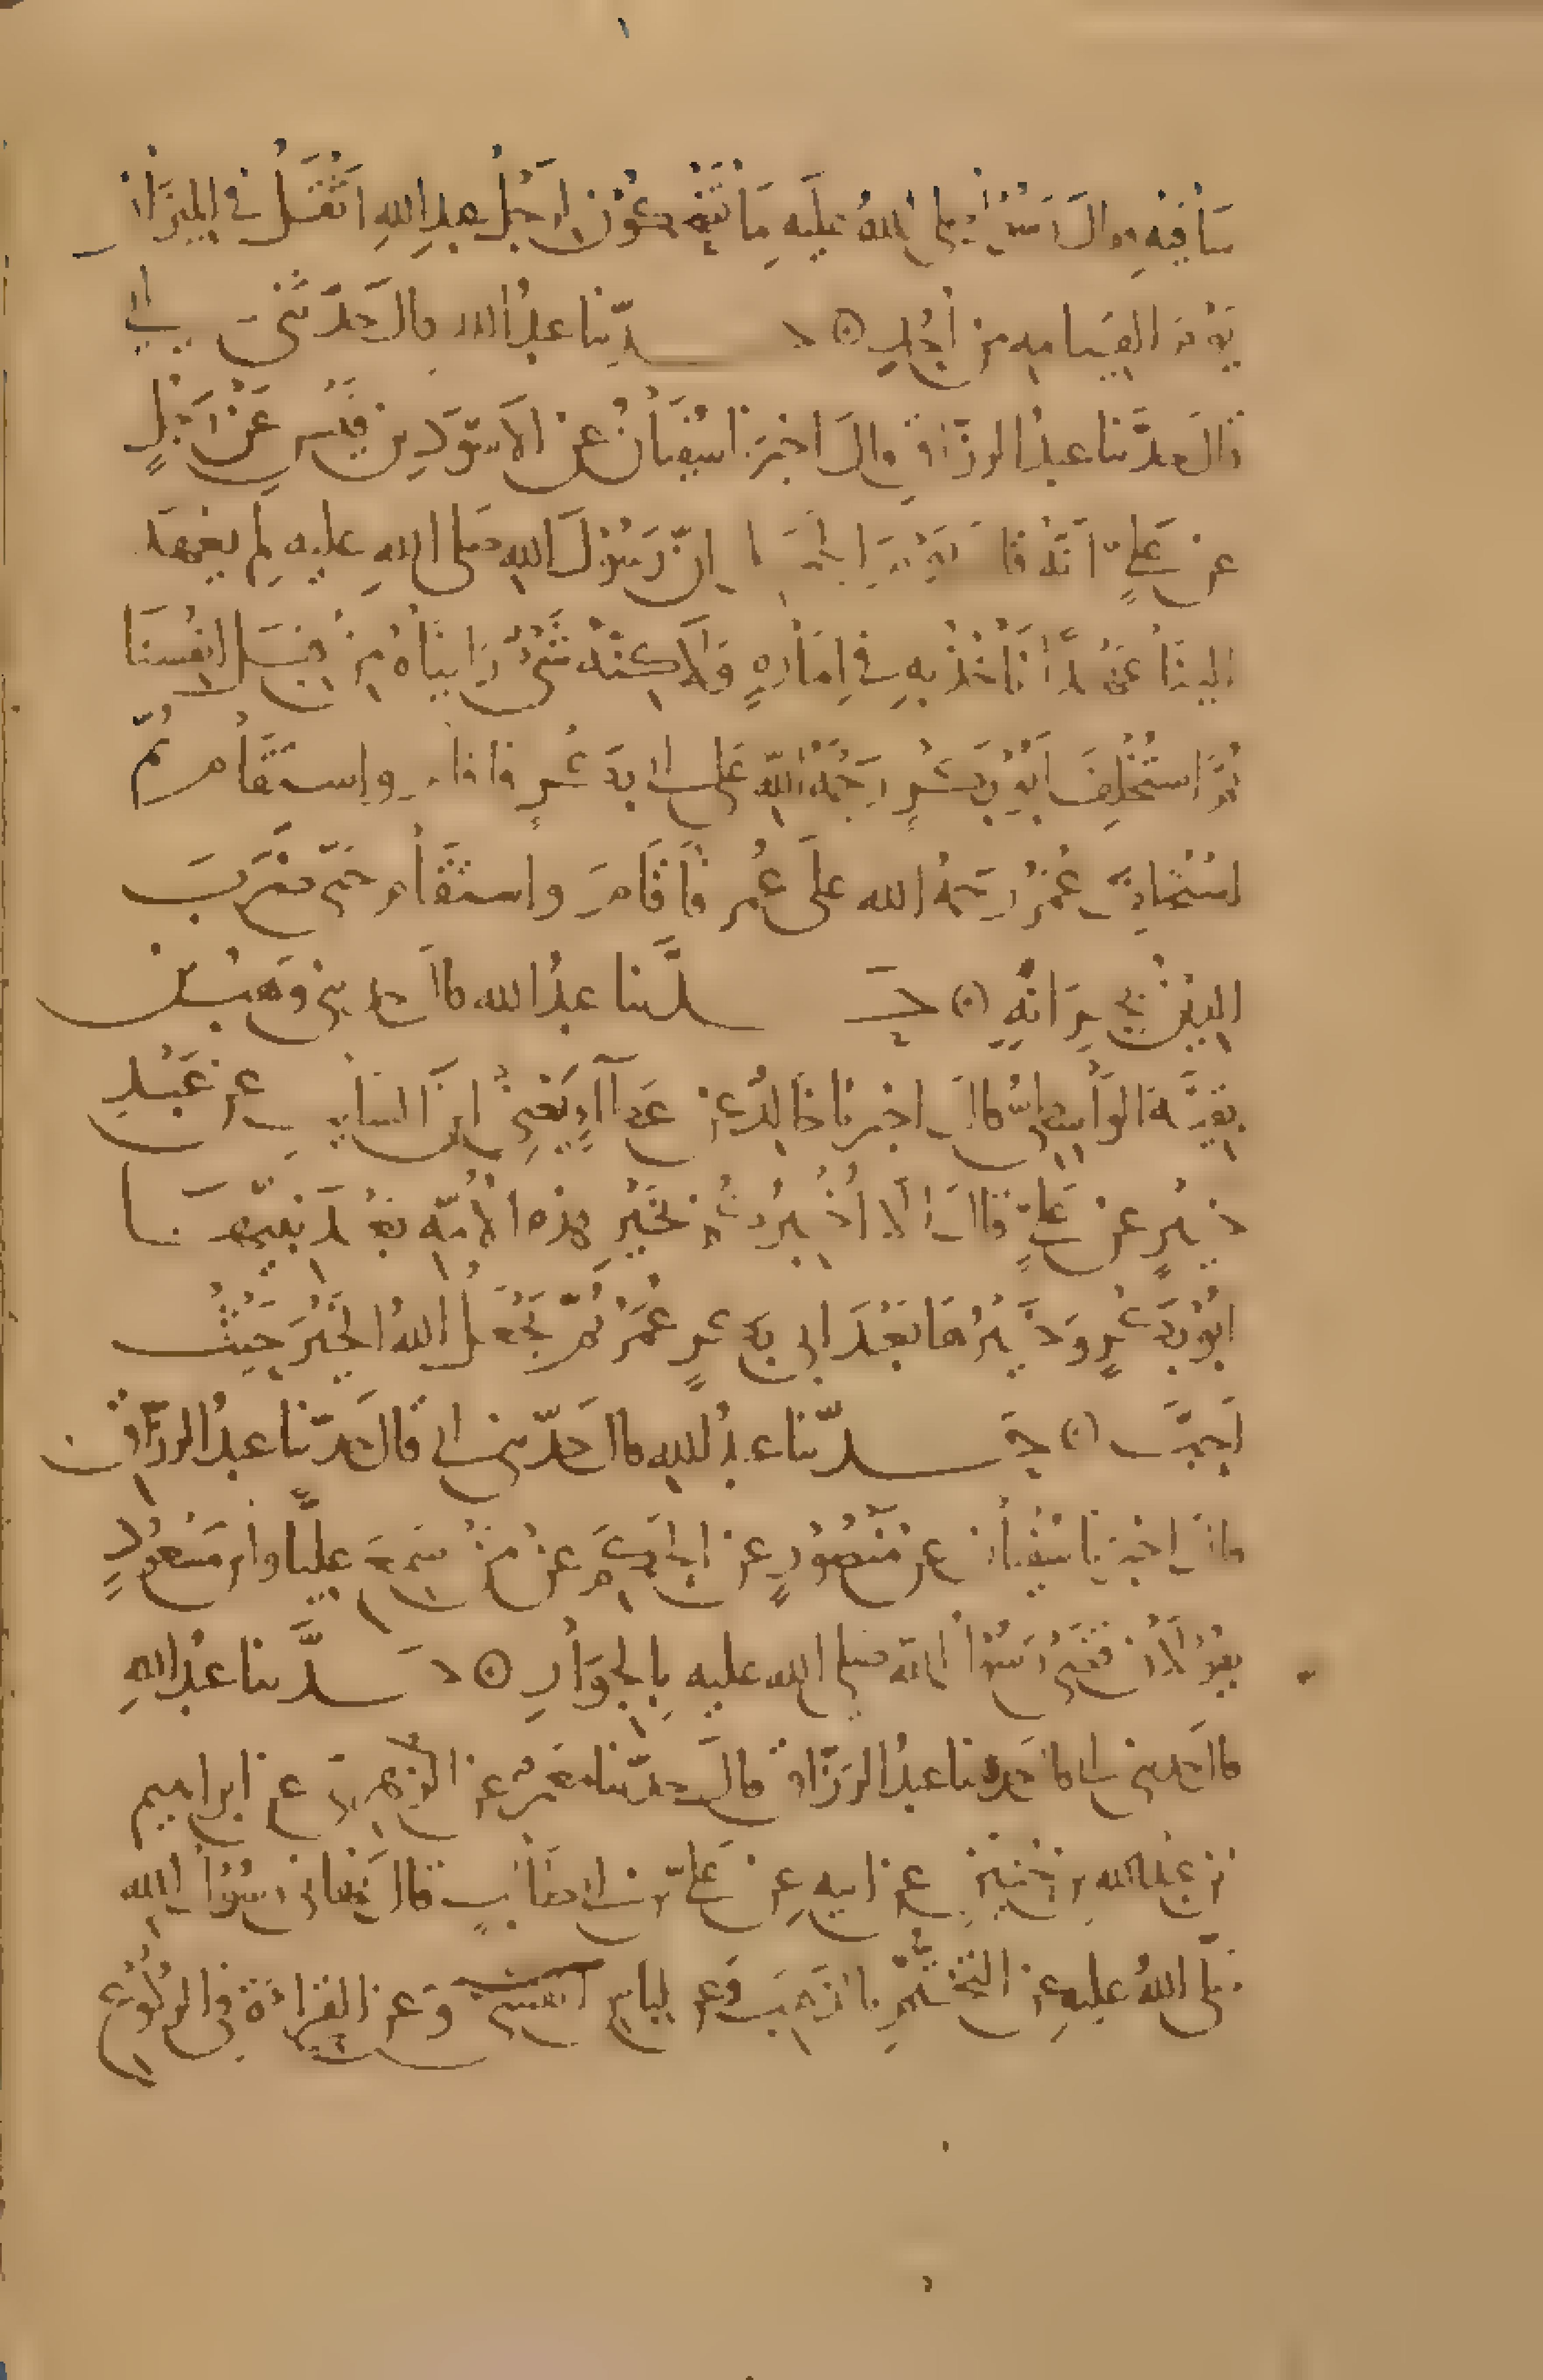 ساقيه فقال رسول الله صلى الله عليه ما تضحكون لرجل عبد الله اثقل في الميزان
يوم القيامه من احد ۞ حدثنا عبد الله قال حدثني ابي
قال حدثنا عبد الرزاق قال اخبرنا سفيان عن الاسود بن قيس عن رجل
عن علي انه قال يوم الجمل ان رسول الله صلى الله عليه لم يعهد
الينا عهدا ناخذ به في اماره ولاكنه شي رايناه من قبل انفسنا
ثم استخلف ابو بكر رحمة الله على ابي بكر فاقام واستقام ثم
استخلف عمر رحمة الله على عمر فاقام واستقام حتى ضرب
الدين بجرانه ۞ حدثنا عبد الله قال حدثني وهب بن
بقية الواسطي قال اخبرنا خالد عن عطاء يعني ابن السايب عن عبد
خير عن علي قال الا اخبركم بخير هذه الامه بعد نبيها
ابو بكر وخيرها بعد ابي بكر عمر ثم يجعل الله الخير حيث
احب ۞ حدثنا عبد الله قال حدثني ابي قال حدثنا عبد الرزاق
قال اخبرنا سفيان عن منصور عن الحكم عن من سمع عليا وابن مسعود
يقولان قضى رسول الله صلى الله عليه بالجوار ۞ حدثنا عبد الله
قال حدثني ابي قال حدثنا عبد الرزاق قال حدثنا معمر عن الزهري عن ابراهيم
بن عبد الله بن حنين عن ابيه عن علي بن ابي طالب قال نهاني رسول الله
صلى الله عليه عن التختم بالذهب وعن لباس القسي وعن القراءة في الركوع